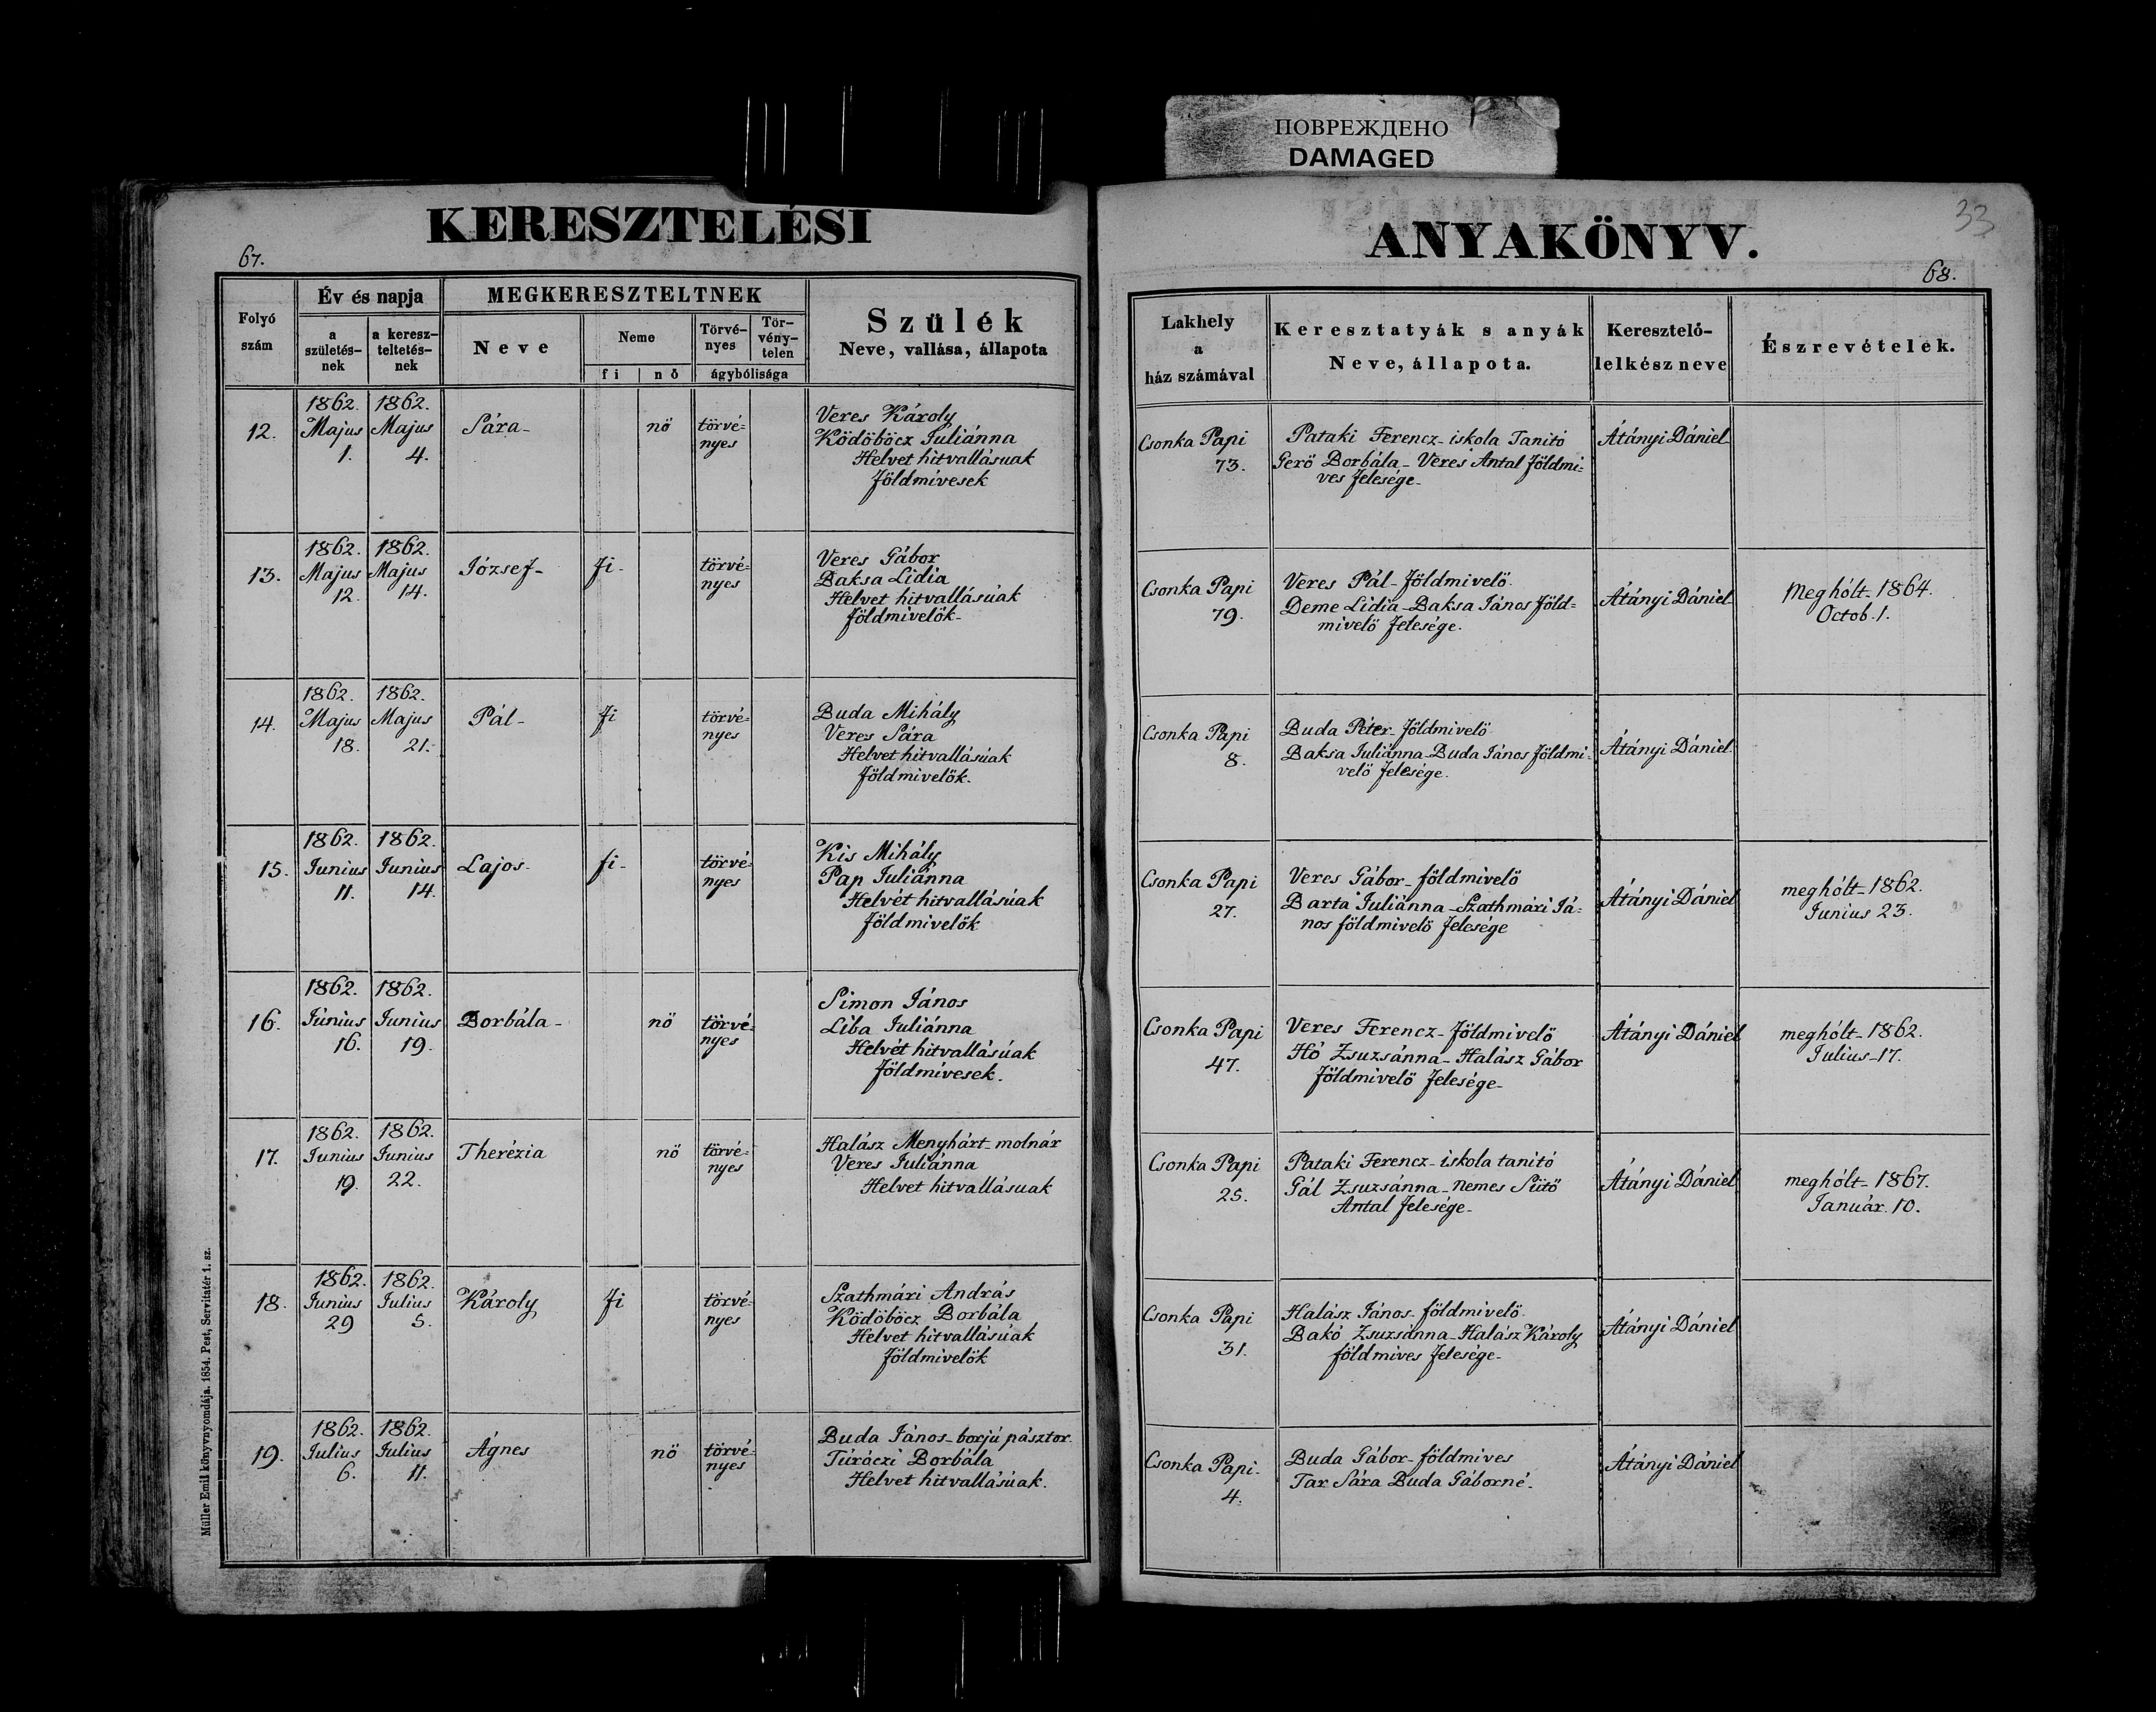 ПОВРЕЖДЕНО
DAMAGED
KERESZTELÉSI
67.
Folyó
szám
Év és napja
a
születés-
nek
a keresz-
teltetés-
nek
MEGKERESZTELTNEK
Neve
Neme
fi
nő
Törvé-
nyes
Tör-
vény-
telen
ágybólisága
Szülék
Neve, vallása, állapota
12.
1862.
Majus
1.
1862.
Majus
4.
Sára-
nö
törvé-
nyes
Veres Károly
Ködöböcz Juliánna
Helvet hitvallásuak
Földmívesek
13.
1862.
Majus
12.
1862.
Majus
14.
József-
fi-
törvé-
nyes
Veres Gábor
Baksa Lidia
Helvet hitvallásúak
földmivelök-
14.
1862.
Majus
18.
1862.
Majus
21.-
Pál-
fi
törvé-
nyes
Buda Mihály
Veres Sára
Helvet hitvallásúak
földmivelök.
15.
1862.
Junius
11.
1862.
Junius
14.
Lajos-
fi-
törvé-
nyes
Kis Mihály
Pap Juliánna
Helvét hitvallásúak
földmivelök
16.
1862.
Június
16.
1862.
Junius
19.
Borbála-
nö
törvé-
nyes
Simon János
Liba Juliánna
Helvét hitvallásúak
földmívesek.
17.
1862.
Junius
19.
1862.
Junius
22.
Therézia
nö
törvé-
nyes
Halász Menyhárt-molnár
Veres Juliánna
Helvet hitvallásuak
18.
1862.
Junius
29
1862.
Julius
5.
Károly
fi
törvé-
nyes
Szathmári András
Ködöböcz Borbála
Helvet hitvallásúak
földmivelök
19.
1862.
Julius
6.
1862.
Julius
11.
Ágnes
nö
törvé-
nyes
Buda János-borjú pásztor.
Túróczi Borbála
Helvet hitvallásúak.
Müller Emil könyvnyomdája. 1854. Pest, Servitatér 1. sz.
33
ANYAKÖNYV.
68.
Lakhely
a
ház számával
Keresztatyák s anyák
Neve, állapota.
Keresztelő-
lelkész neve
Észrevételek.
Csonka Papi
73.
Pataki Ferencz-iskola Tanitó
Gerö Borbála-Veres Antal földmi-
ves felesége-
Átányi Dániel-
Csonka Papi
79.
Veres Pál-földmivelö.
Deme Lidia-Baksa János föld-
mivelö felesége.
Átányi Dániel-
Meghólt-1864.
Octob.1.
Csonka Papi
8.
Buda Péter-földmivelö
Baksa Juliánna-Buda János földmi-
velö felesége.
Átányi Dániel-
Csonka Papi
27.
Veres Gábor-földmivelö
Barta Juliánna-Szathmári Já-
nos földmivelö felesége
Átányi Dániel
meghólt-1862.
Junius 23.
Csonka Papi
47.
Veres Ferencz-földmivelö
Hó Zsuzsánna-Halász Gábor
földmivelö felesége-
Átányi Dániel
meghólt-1862.
Julius-17.
Csonka Papi
25.
Pataki Ferencz-iskola tanitó
Gál Zsuzsánna-nemes Sütö
Antal felesége-
Átányi Dániel
meghólt-1867.
Január.10.
Csonka Papi
31.
Halász János-földmivelö.
Bakó Zsuzsánna-Halász Károly
földmives felesége-
Átányi Dániel
Csonka Papi-
4.
Buda Gábor-földmives
Tar Sára Buda Gáborné-
Átányi Dániel